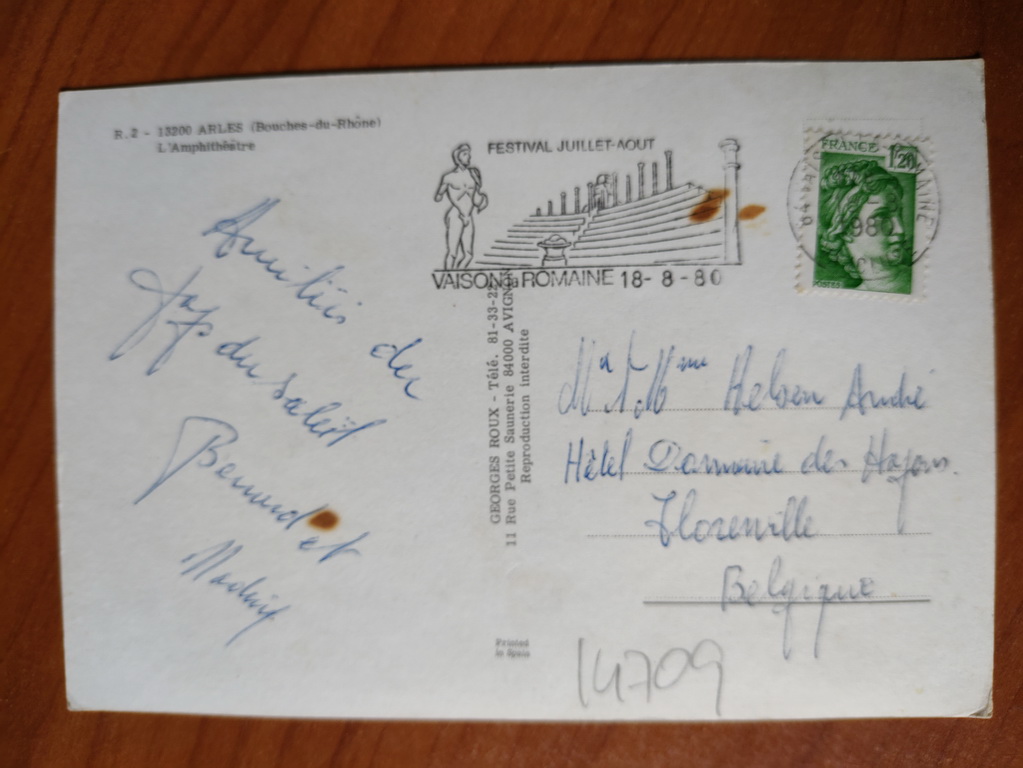 R.2 - 13200 ARLES (Bouches-du-Rhône)
L'Amphithéâtre
FESTIVAL JUILLET-AOUT
VAISON la ROMAINE 18-8-80
FRANCE 1,20
POSTES
1980
Amitiés du
pays du soleil
Bernard et
GEORGES ROUX - Télé. 81-33-22
11 Rue Petite Saunerie 84000 AVIGNON
Reproduction interdite
Mme Heloen André
Hôtel Domaine des Hayons.
Florenville
Belgique
Printed
in Spain
14709